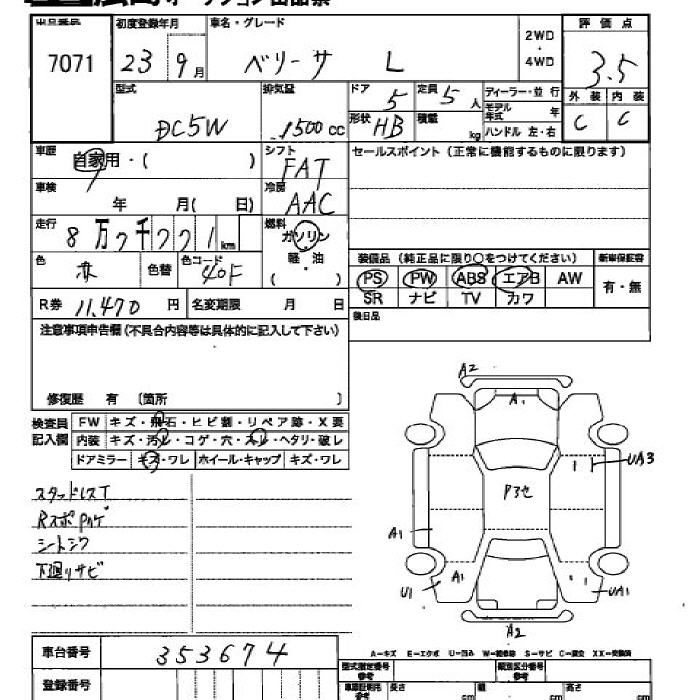 オークション出品票
出品番号 初度登録年月 車名・グレード 2WD・4WD 評価点
7071 23 9月 ベリーサ L 3.5
型式 排気量 ドア 定員 ディーラー・並行 外装 内装
DC5W 1500cc 5 5人 モデル年式 年 C C
形状 HB 積載 kg ハンドル 左・右
車歴 自家用・( ) シフト FAT セールスポイント(正常に機能するものに限ります)
車検 年 月( 日) 冷房 AAC
走行 8万7千771km 燃料 ガソリン
軽・油
( )
色 赤 色替 色コード 40F 装備品(純正品に限り○をつけてください) 新車保証書
PS PW ABS エアB AW 有・無
R券 11,470円 名変期限 月 日 SR ナビ TV カワ
注意事項申告欄(不具合内容等は具体的に記入して下さい) 後日品
修復歴 有 〔箇所 〕
検査員記入欄 FW キズ・飛石・ヒビ割・リペア跡・X要
内装 キズ・汚レ・コゲ・穴・スレ・ヘタリ・破レ
ドアミラー キズ・ワレ ホイール・キャップ キズ・ワレ
A2
A1
UA3
スタッドレスT
RスポPハゲ
Pスセ
シートシワ
A1
下廻りサビ
U1 A1 UA1
A2
車台番号 353674 A-キズ E-エクボ U-凹み W-補修跡 S-サビ C-腐食 XX-交換済
型式指定番号 参考 類別区分番号 参考
登録番号 車庫証明用 参考 長さ cm 幅 cm 高さ cm